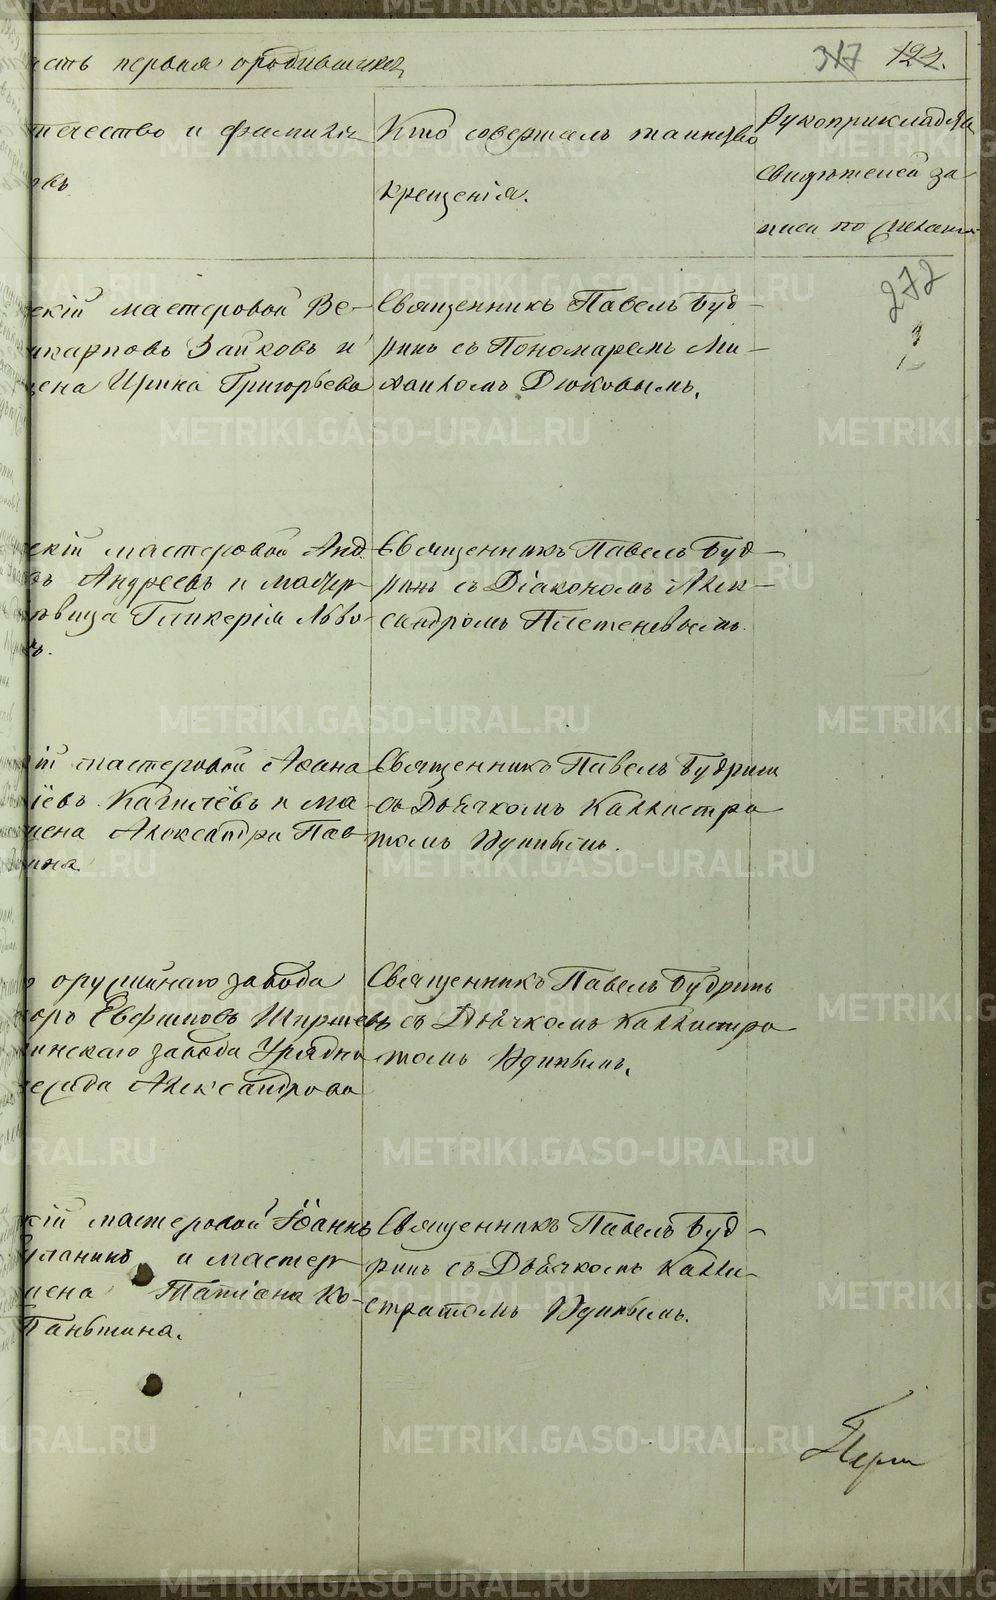 асть первая о родившихся 317 122.
течество и фамилія
Кто совершалъ таинство
крещенія.
Рукоприкладства
свидѣтелей за
писи по желанію
272
3
1
скій мастеровой Ве-
икарповъ Зайковъ и
жена Ирина Григорьева
Священникъ Павелъ Буд-
ринъ съ Пономаремъ Ми-
хаиломъ Дюковымъ.
скій мастеровой Анд
Андреевъ и мастер
дѣвица Гликерія Льво-
Священникъ Павелъ Буд-
ринъ съ Діакономъ Алек-
сандромъ Плетеневымъ.
ій мастеровой Афана
Качилёвъ и ма-
жена Александра Пав-
Священникъ Павелъ Будринъ
съ Дьячкомъ Каллистра
томъ Удинымъ.
оружейнаго завода
Евфимовъ Ширяевъ
инскаго завода Урядни
Александрова
Священникъ Павелъ Будринъ
съ Дьячкомъ Каллистра
томъ Удинымъ.
кій мастеровой Іоаннъ
и мастер
жена Татіана Ко-
Паньшина.
Священникъ Павелъ Буд-
ринъ съ Дьячкомъ Калли-
стратомъ Удинымъ.
METRIKI.GASO-URAL.RU